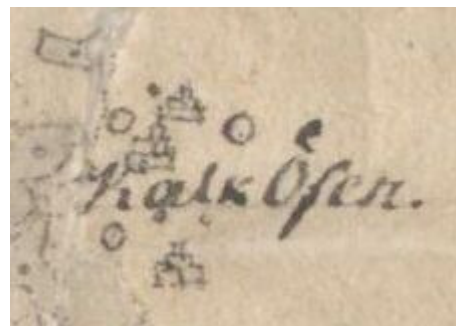 Kalk Öfen.